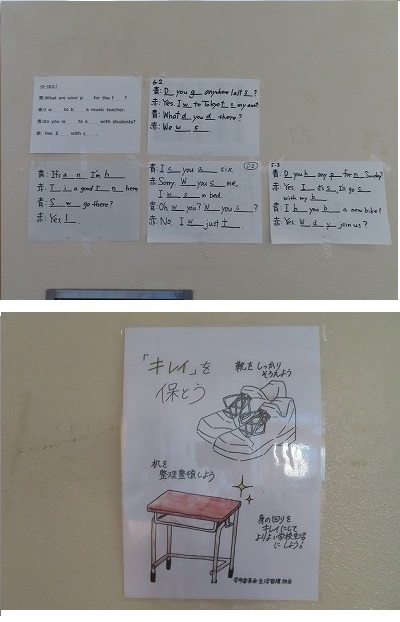 青:What are your p   for the f   ?
赤:I w   to b   a music teacher.
青:Do you w   to s   with students?
赤: Yes. I   with c   .
5-2
青: D you g anywhere last s ?
赤: Yes. I w to Tokyo t s my aunt.
青: What d you d there?
赤: We w s .
青: It's a n . I'm h
赤: T i a good r n here.
青: S w go there?
赤: Yes, l .
5-3
青: I c you a six.
赤: Sorry. W you c me,
I w s n bed.
青: Oh w you? W you s ?
赤: No. I w just t .
青: D you h any p for n Sunday?
赤: Yes, I d
with my b .
青: I h you b a new bike!
赤: Yes. W d y join us?
「キレイ」を
保とう
靴をしっかり
そろえよう
机を
整理整頓しよう
身の回りを
キレイにして
よりよい学校生活
にしよう!